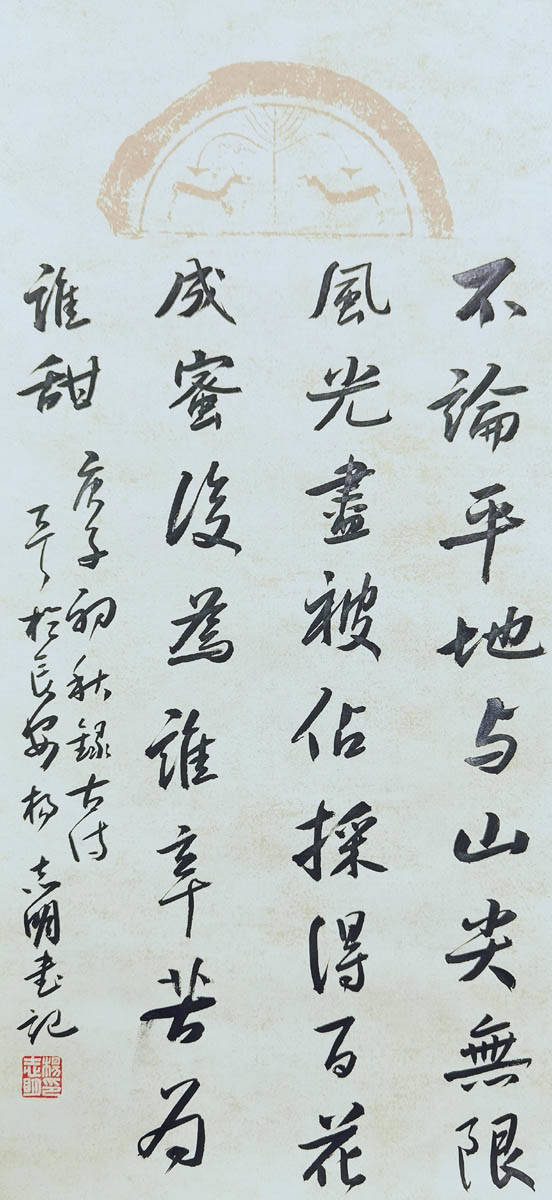 不論平地与山尖無限
風光盡被佔採得百花
成蜜後為誰辛苦为
誰甜
庚子初秋錄古诗
一首於長安杨志明書記
楊印
志明